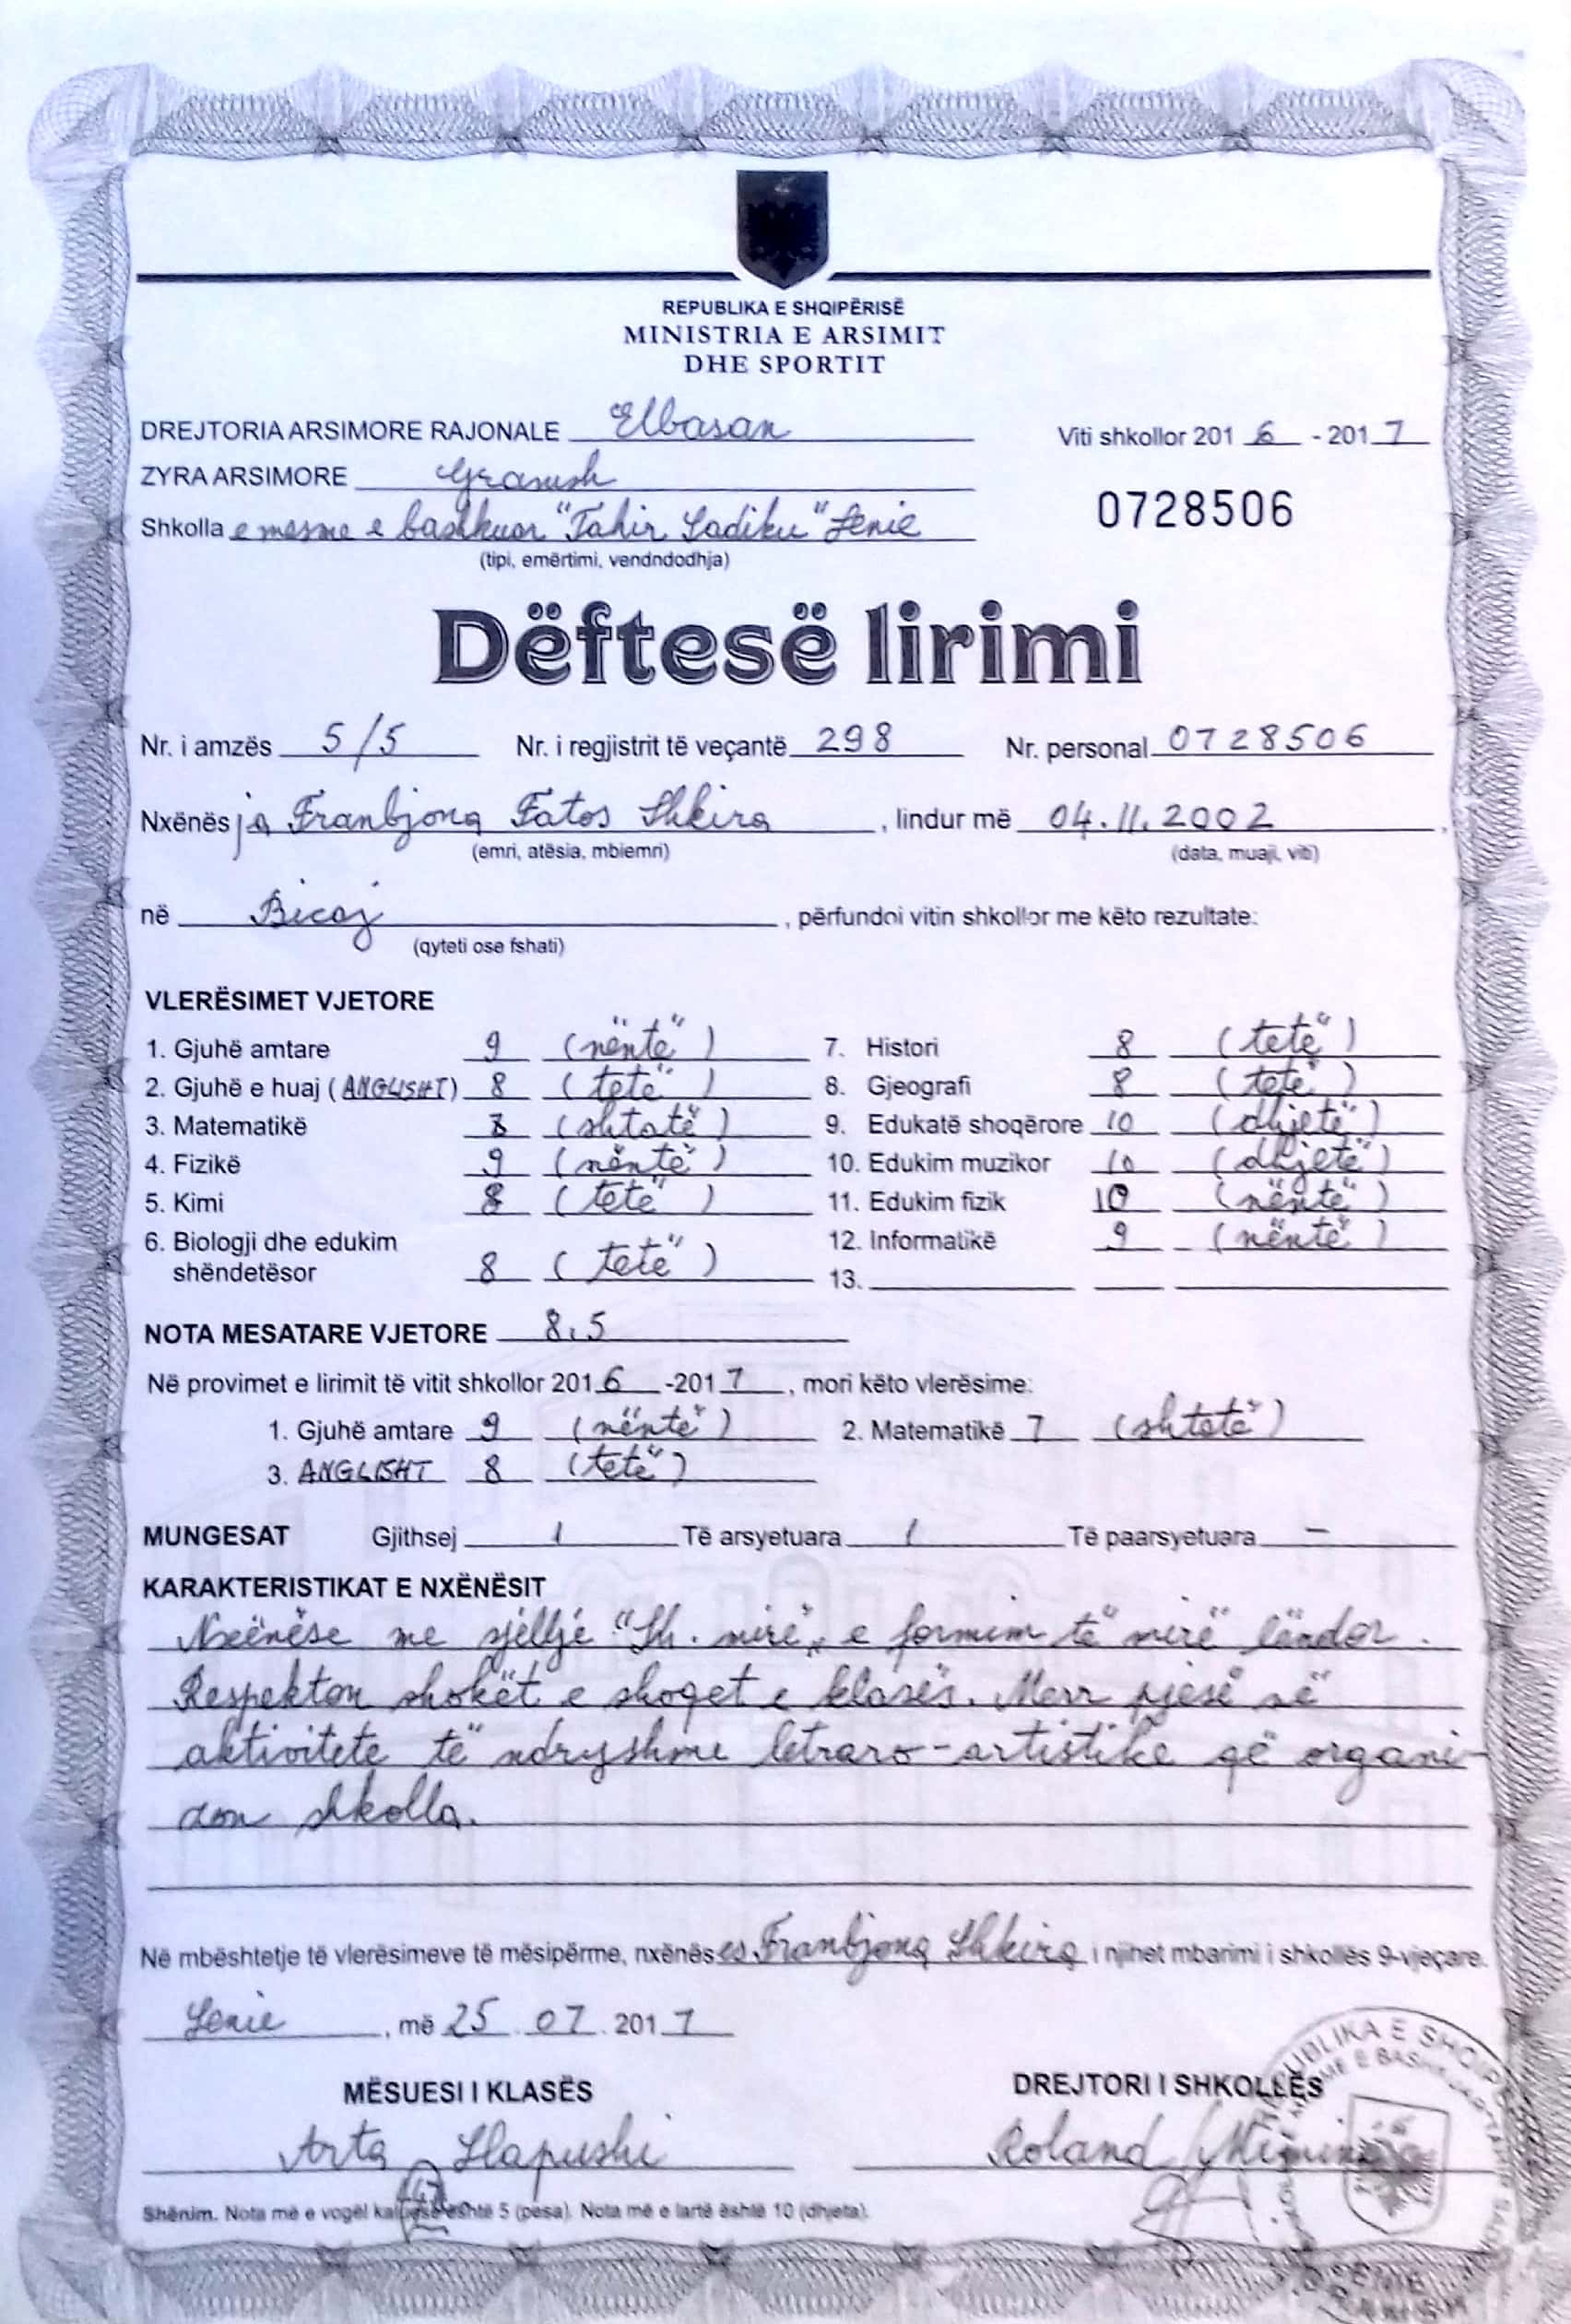 REPUBLIKA E SHQIPËRISË
MINISTRIA E ARSIMIT
DHE SPORTIT
DREJTORIA ARSIMORE RAJONALE Elbasan
Viti shkollor 2016 - 2017
ZYRA ARSIMORE Gramsh
0728506
Shkolla e mesme e bashkuar "Tahir Sadiku" Lenie
(tipi, emërtimi, vendndodhja)
Dëftesë lirimi
Nr. i amzës 5/5 Nr. i regjistrit të veçantë 298 Nr. personal 0728506
Nxënësja Franbjona Fatos Shkira, lindur më 04.11.2002,
(emri, atësia, mbiemri) (data, muaji, viti)
në Bicaj, përfundoi vitin shkollor me këto rezultate:
(qyteti ose fshati)
VLERËSIMET VJETORE
1. Gjuhë amtare 9 (nëntë) 7. Histori 8 (tetë)
2. Gjuhë e huaj (ANGLISHT) 8 (tetë) 8. Gjeografi 8 (tetë)
3. Matematikë 7 (shtatë) 9. Edukatë shoqërore 10 (dhjetë)
4. Fizikë 9 (nëntë) 10. Edukim muzikor 10 (dhjetë)
5. Kimi 8 (tetë) 11. Edukim fizik 10 (nëntë)
6. Biologji dhe edukim shëndetësor 8 (tetë) 12. Informatikë 9 (nëntë)
13.
NOTA MESATARE VJETORE 8.5
Në provimet e lirimit të vitit shkollor 2016 -2017, mori këto vlerësime:
1. Gjuhë amtare 9 (nëntë) 2. Matematikë 7 (shtatë)
3. ANGLISHT 8 (tetë)
MUNGESAT Gjithsej 1 Të arsyetuara 1 Të paarsyetuara -
KARAKTERISTIKAT E NXËNËSIT
Nxënëse me sjellje "Sh. mirë" e formim të mirë lëndor.
Respekton shokët e shoqet e klasës. Merr pjesë në
aktivitete të ndryshme letraro-artistike që organi-
zon shkolla.
Në mbështetje të vlerësimeve të mësipërme, nxënëses Franbjona Shkira i njihet mbarimi i shkollës 9-vjeçare.
Lenie, më 25.07.2017
MËSUESI I KLASËS DREJTORI I SHKOLLËS
Arta Hapushi Roland
Shënim. Nota më e vogël kaluese është 5 (pesa). Nota më e lartë është 10 (dhjeta).